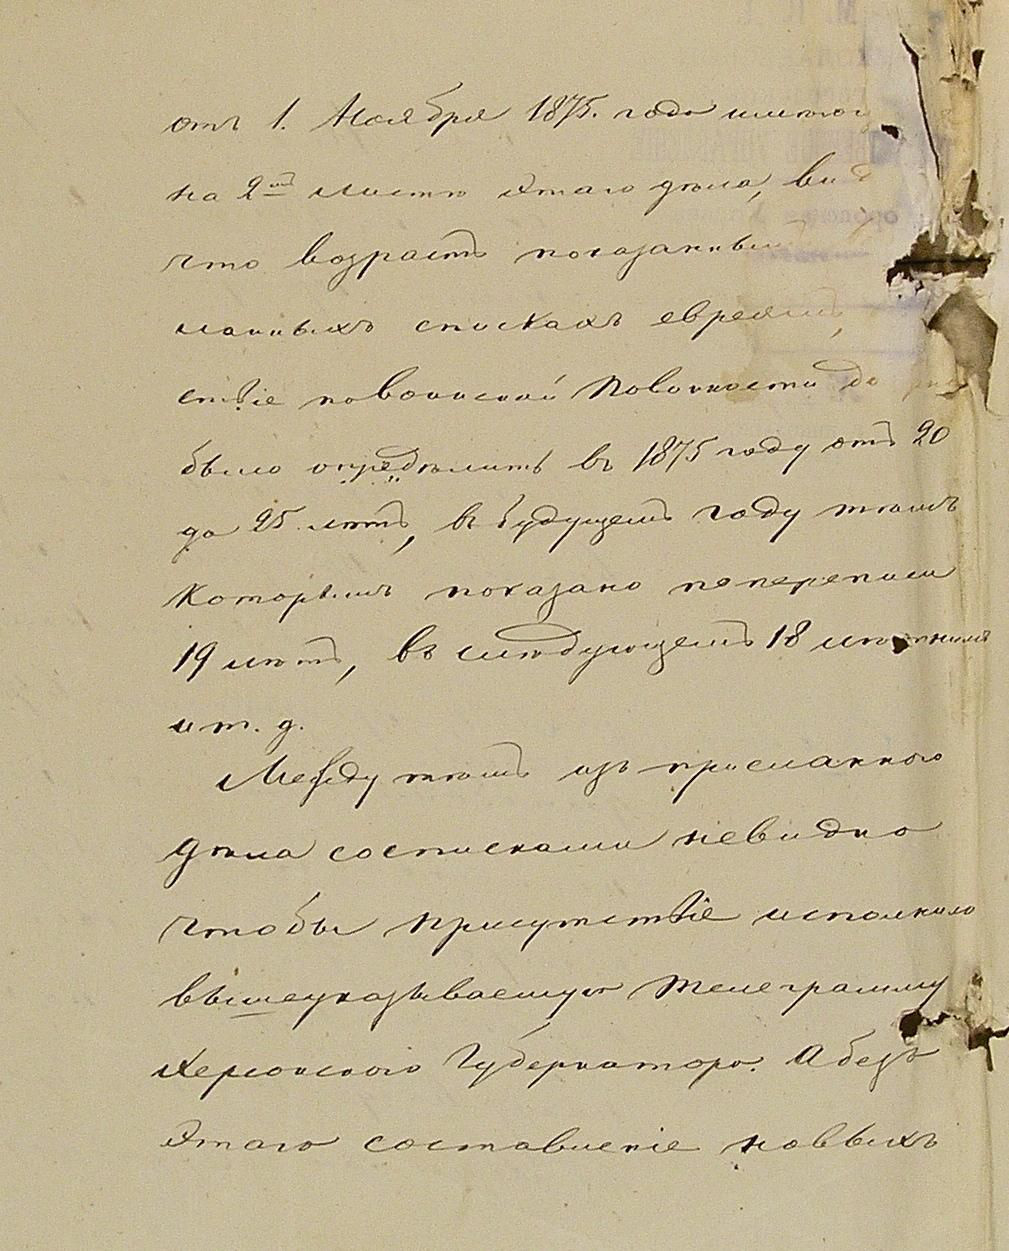 отъ 1. Ноября 1875. года имеющ
на 2мъ листѣ этаго дѣла, вид
что возрастъ показанный
ланныхъ спискахъ евреямъ,
ствіе по воинской повинности до
было опредѣлить въ 1875 году отъ 20
до 25 лѣтъ, въ будущемъ году тѣмъ
которымъ показано по переписи
19 лѣтъ, въ слѣдующемъ 18 лѣтнимъ
и т. д.
Между тѣмъ изъ присланного
дѣла со списками невидно
чтобы присутствіе исполнило
вышеуказываемую телеграмму
Херсонского Губернатора. А безъ
этаго составленіе новыхъ